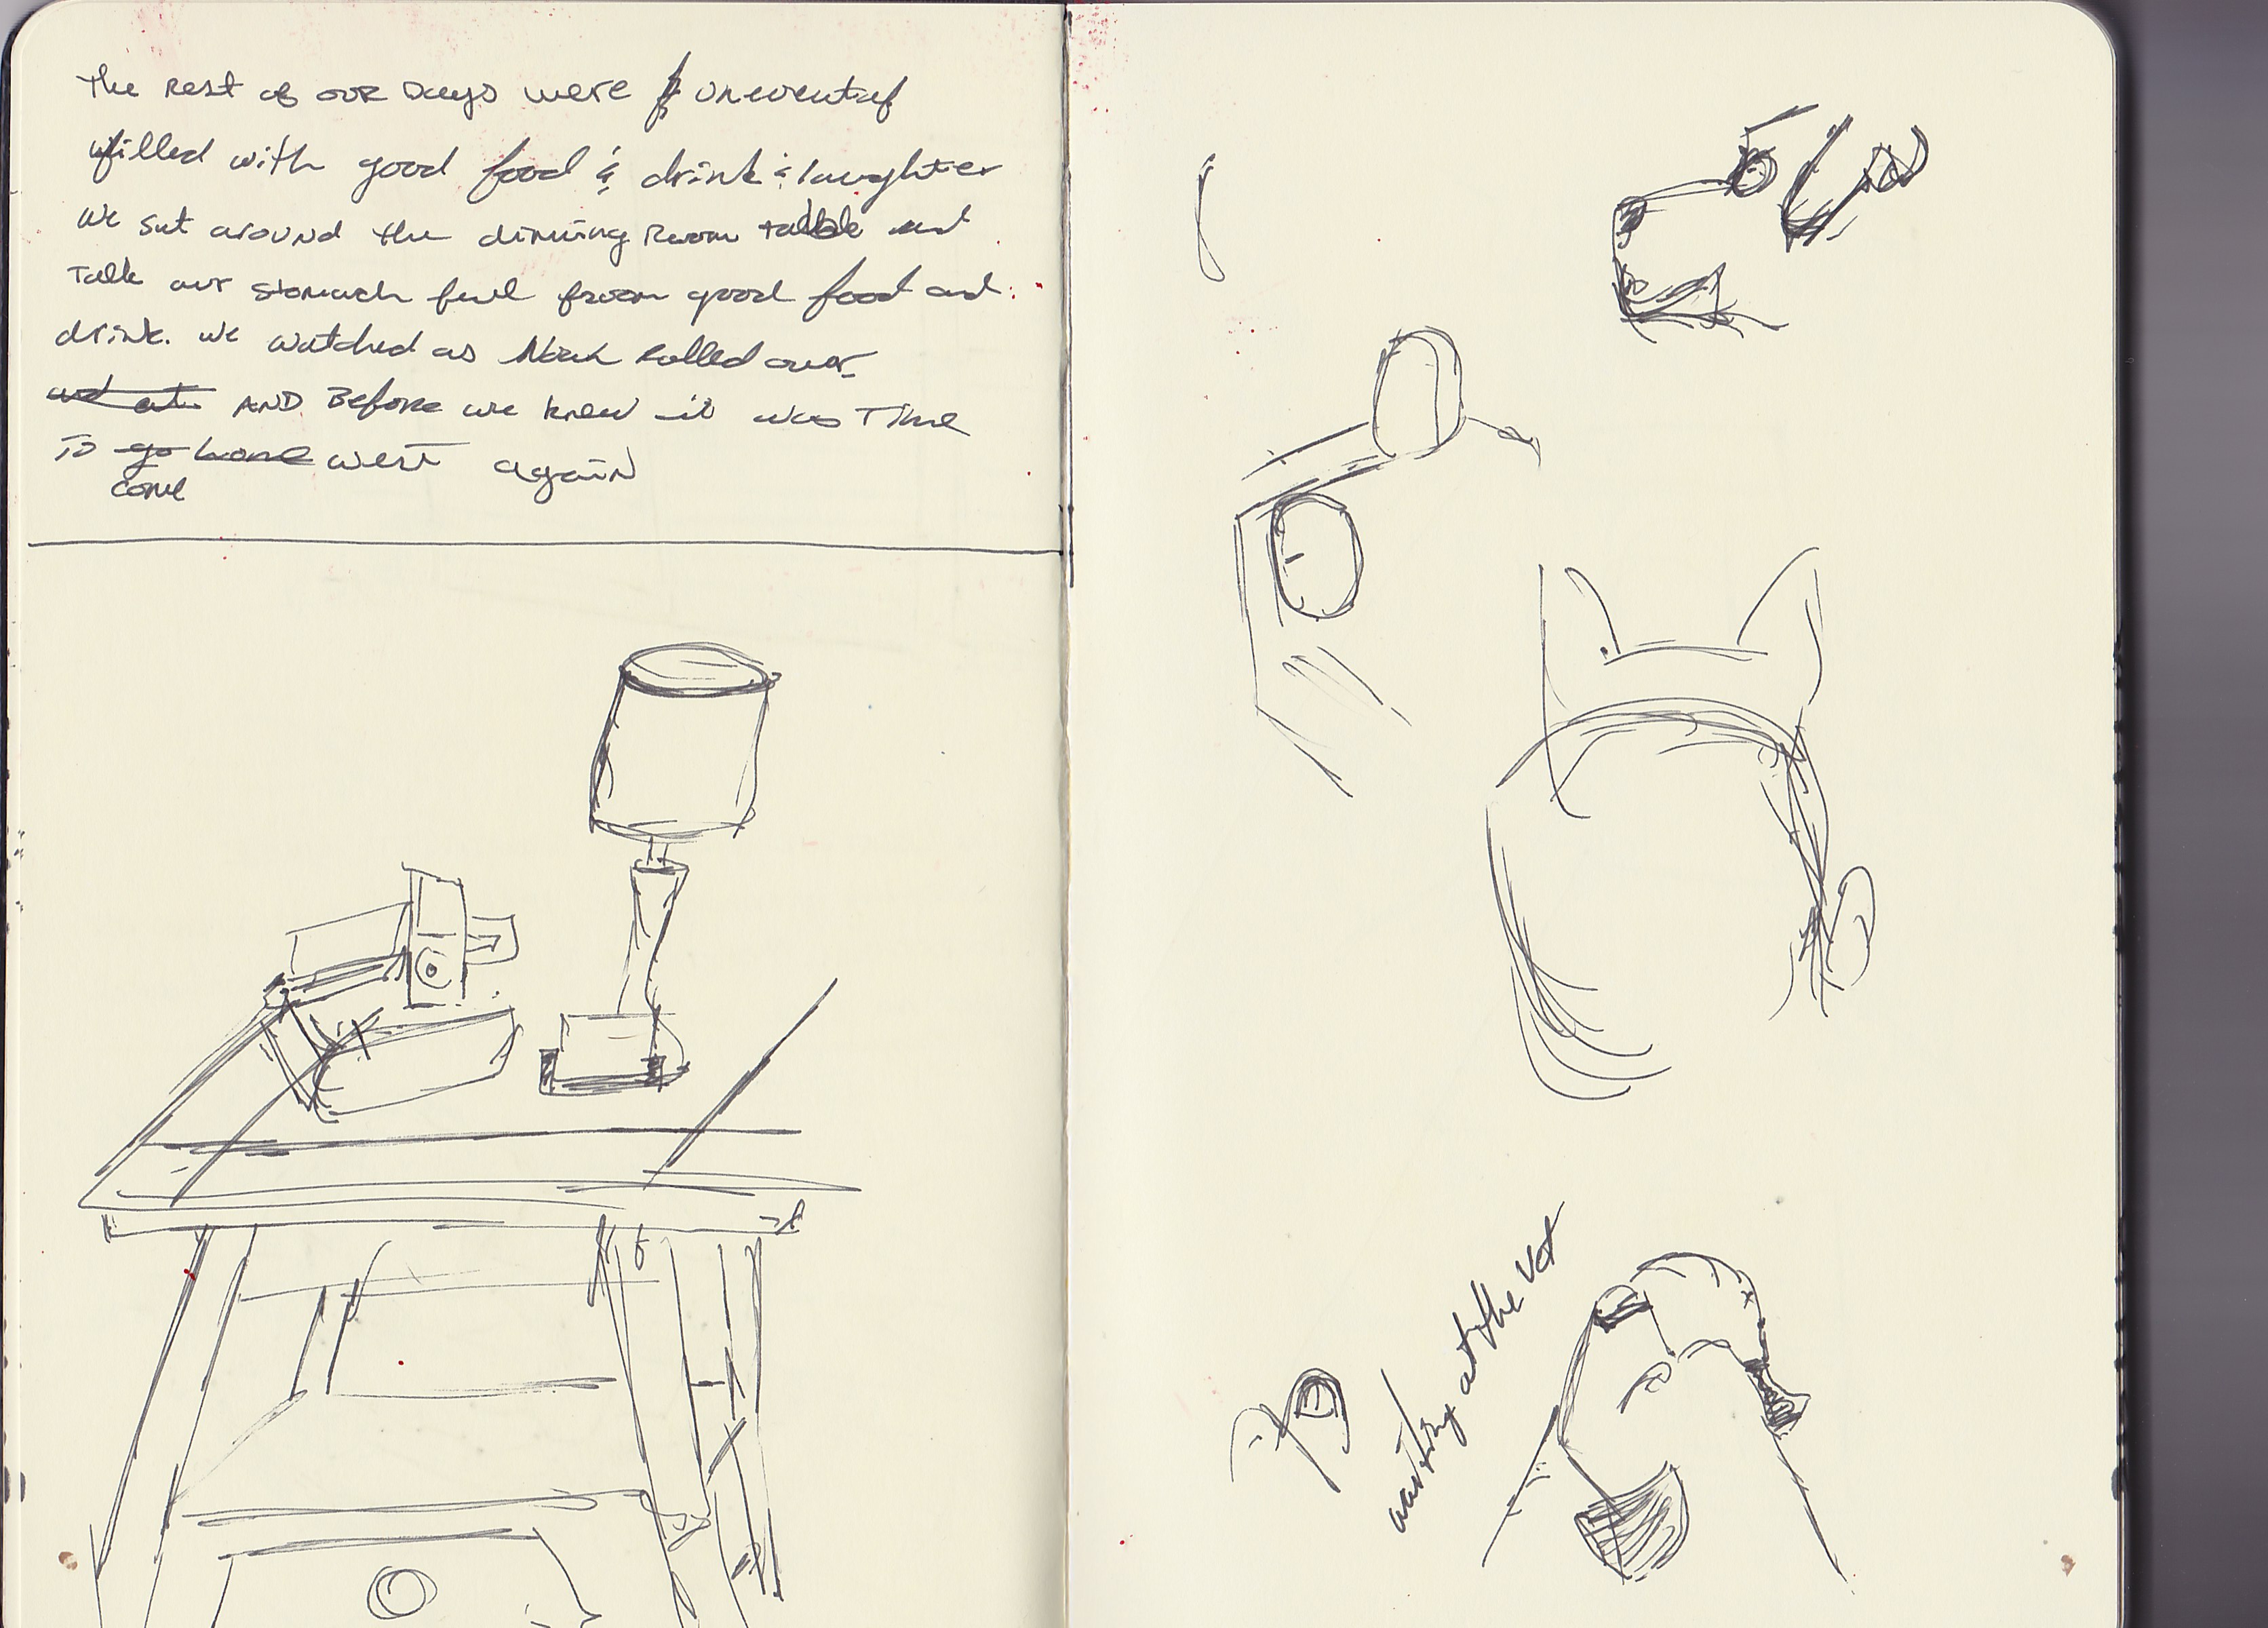 The rest of our Days were uneventful
filled with good food & drink & laughter
we sat around the dinning Room table and
Talk our stomach full from good food and
drink. we watched as Noah Rolled over
and AND Before we knew it was Time
To go home west again
come
waiting at the Vet